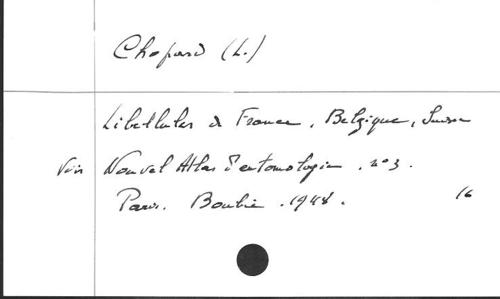 Chopard (L.)
Libellules de France, Belgique, Suisse
Voir Nouvel Atlas d'entomologie . n° 3.
Paris. Boubée . 1948. 16